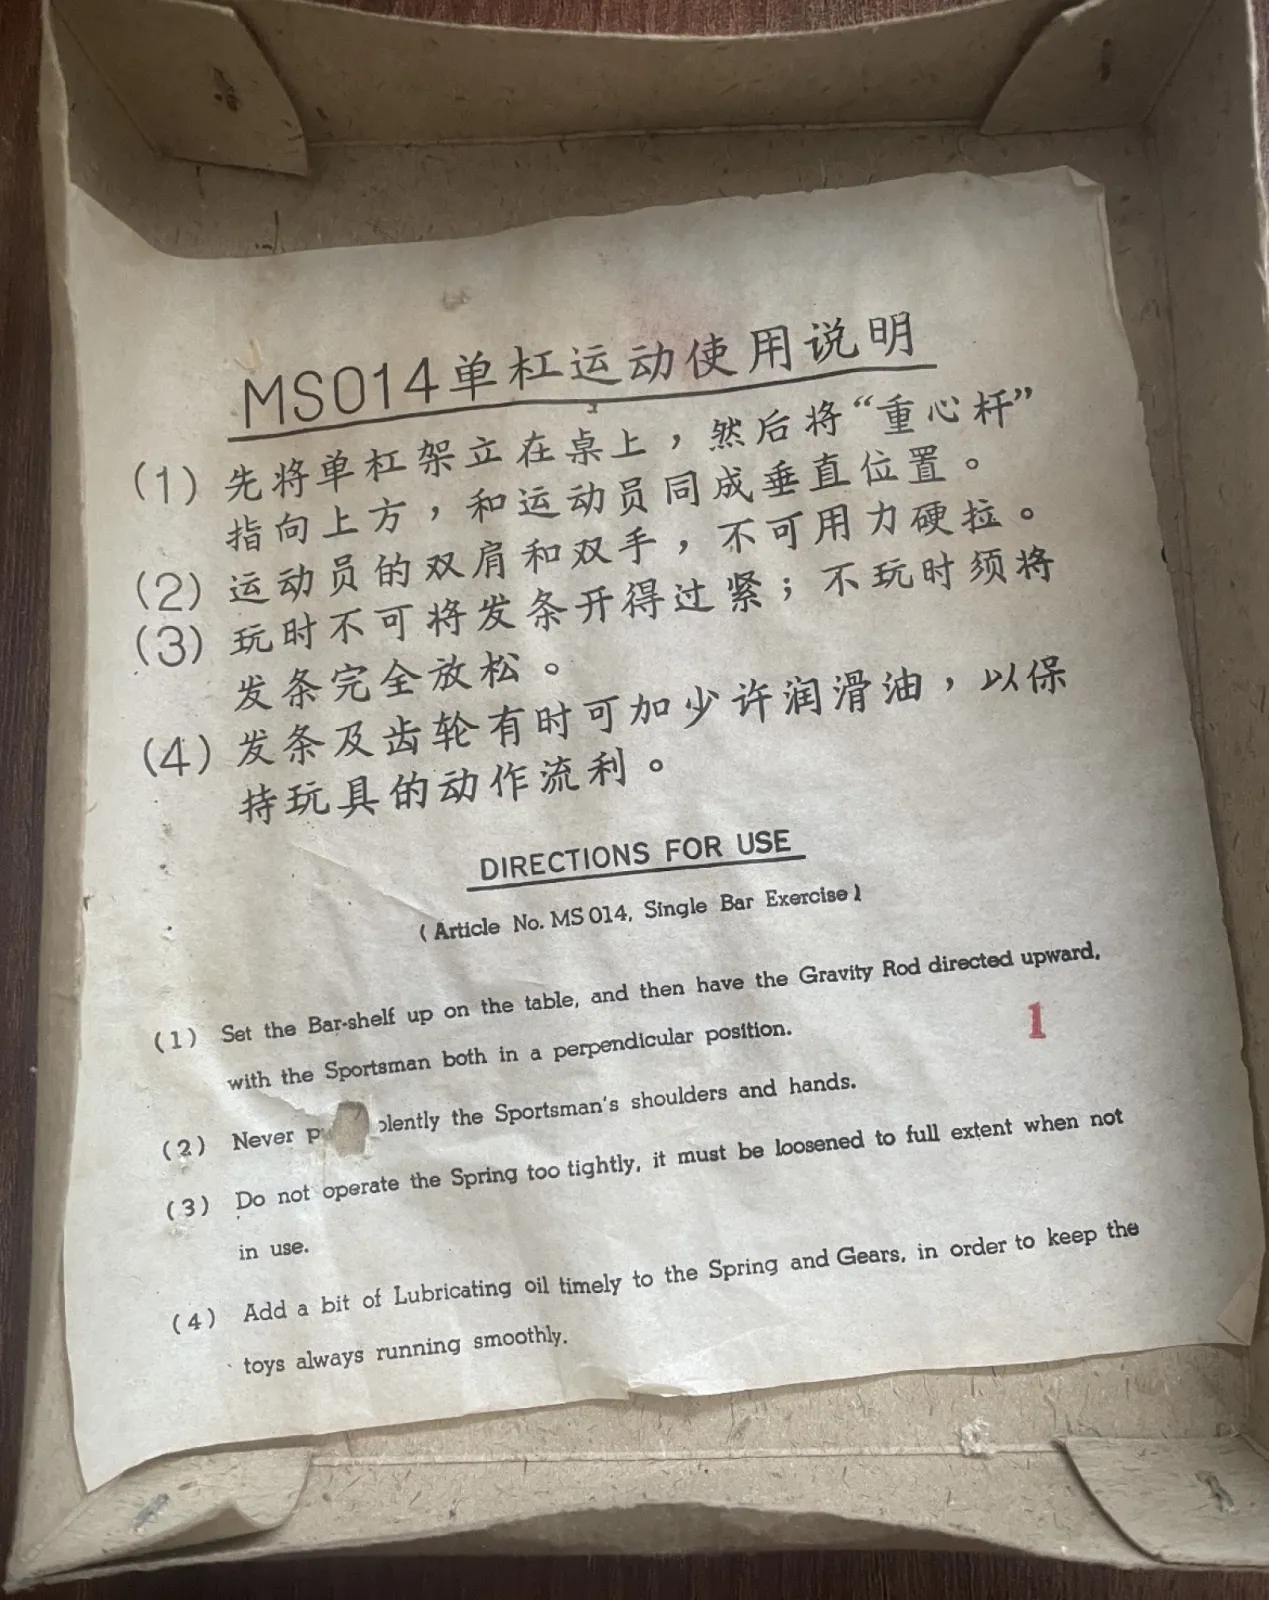 MS014单杠运动使用说明
(1) 先将单杠架立在桌上，然后将“重心杆”
指向上方，和运动员同成垂直位置。
(2) 运动员的双肩和双手，不可用力硬拉。
(3) 玩时不可将发条开得过紧；不玩时须将
发条完全放松。
(4) 发条及齿轮有时可加少许润滑油，以保
持玩具的动作流利。
DIRECTIONS FOR USE
(Article No. MS 014, Single Bar Exercise)
(1) Set the Bar-shelf up on the table, and then have the Gravity Rod directed upward,
with the Sportsman both in a perpendicular position.
1
(2) Never the Sportsman's shoulders and hands.
(3) Do not operate the Spring too tightly, it must be loosened to full extent when not
in use.
(4) Add a bit of Lubricating oil timely to the Spring and Gears, in order to keep the
toys always running smoothly.